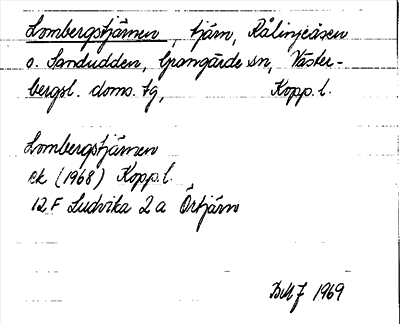 Lombergstjärnen, tjärn, Rålinjeåsen
o. Sandudden, Grangärde sn, Väster-
bergsl. doms. tg, Kopp. l.
Lombergstjärnen
ek (1968) Kopp. l.
12 F Ludvika 2 a Örtjärn
1969